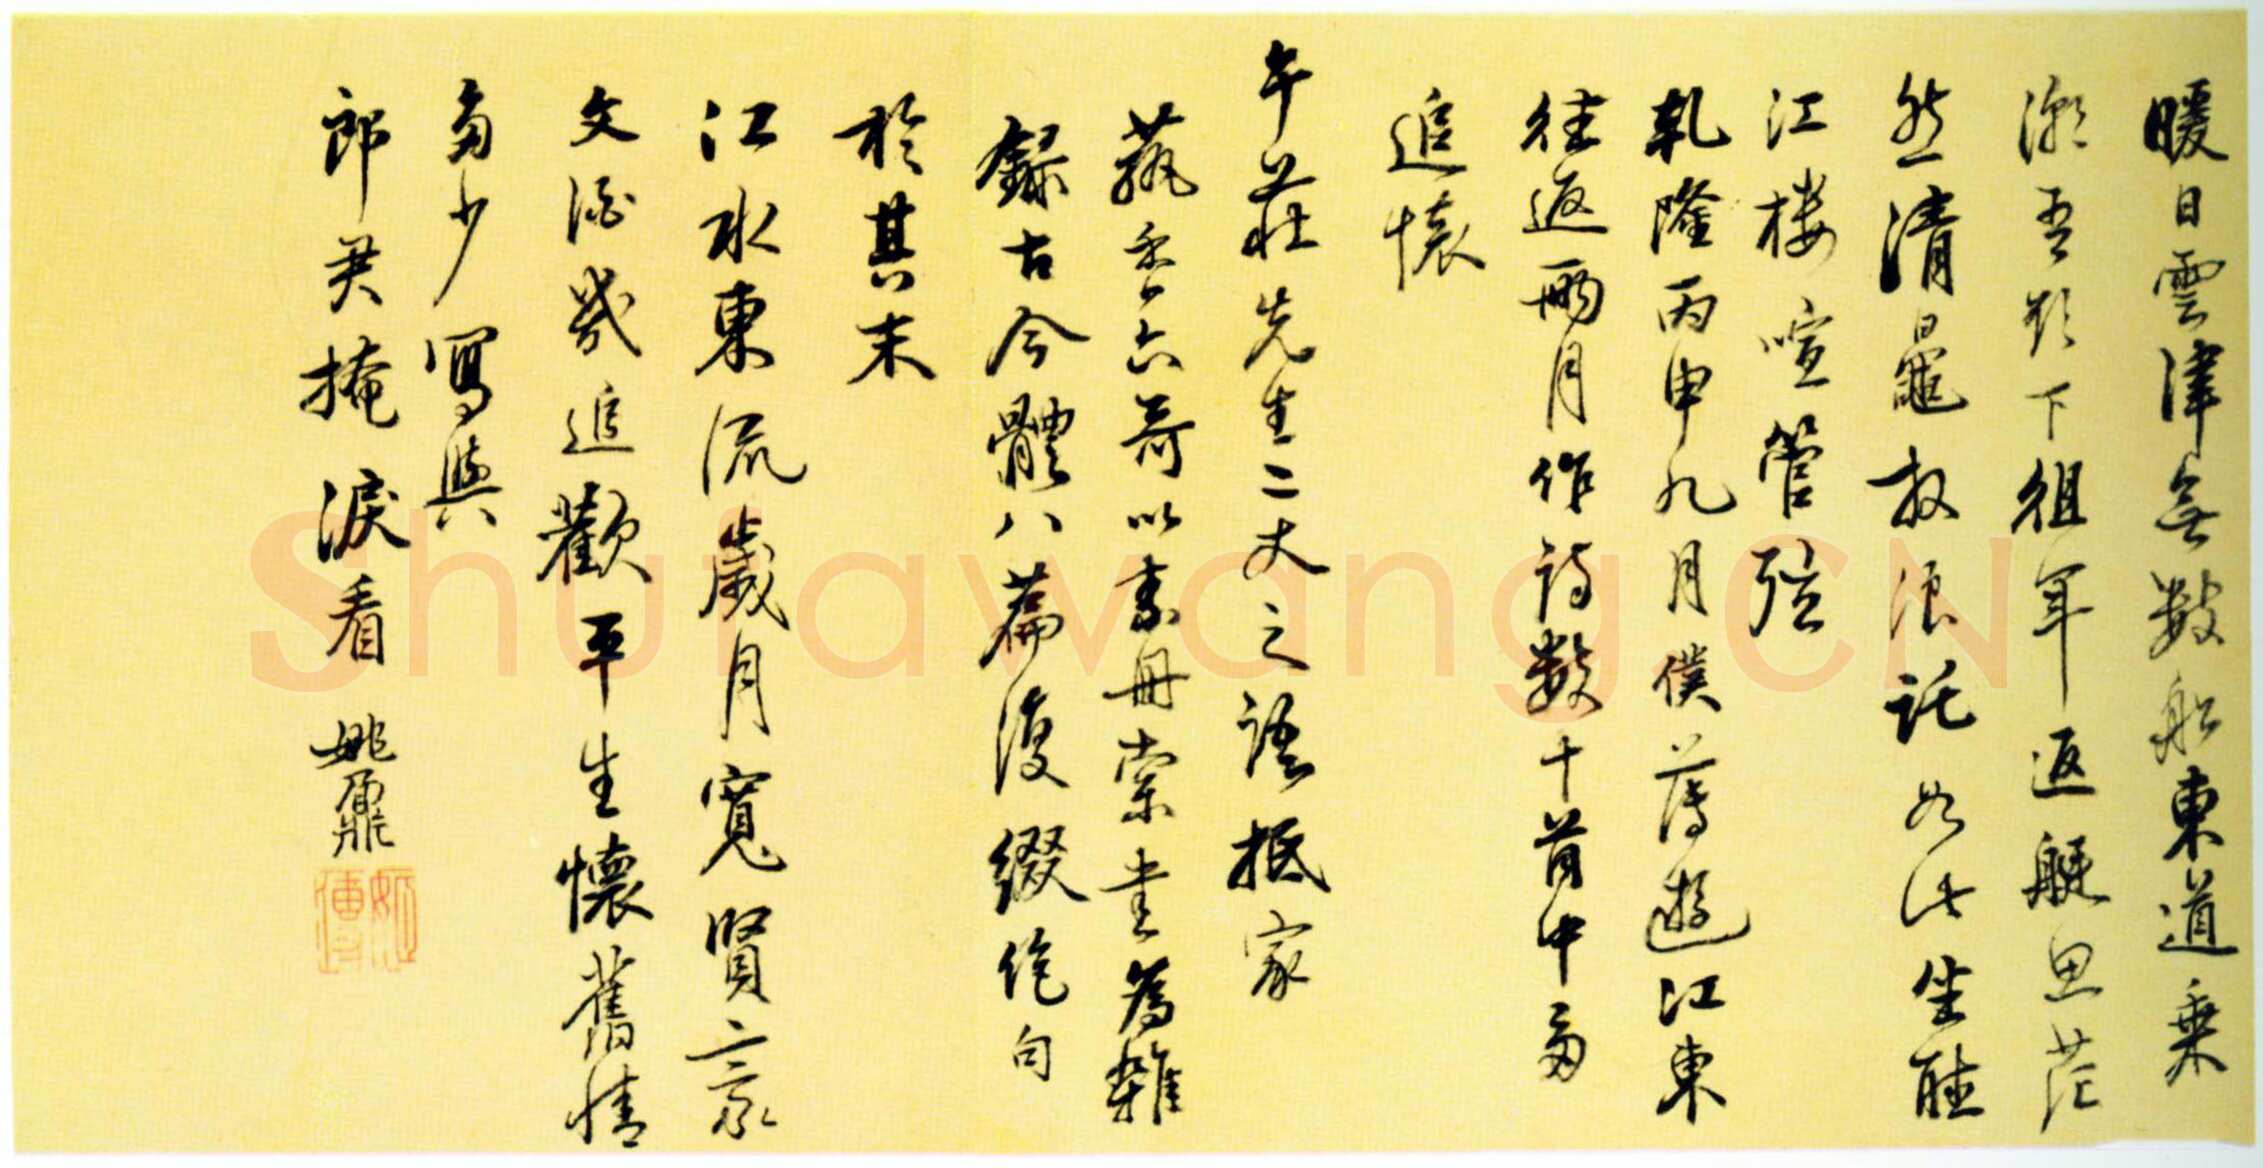 暖日雲津無數船東道乘
潮吾欲下徂年返艇思茫
然清鼂放浪託如此坐聽
江樓喧管弦
乹隆丙申九月僕薄遊江東
往返兩月作詩數十首中多
追懷
午莊先生二丈之語抵家
蓺香六哥以素冊索書為雜
錄古今體八篇復綴絶句
於其末
江水東流歲月寬賢豪
文酒幾追歡平生懷舊情
多少寫與
郎君掩淚看 姚鼐
Shufawang.CN